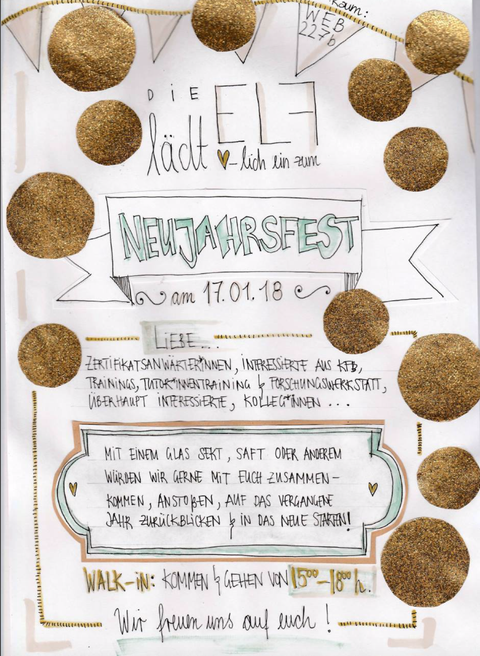 Raum:
WEB
227b
DIE ELF
lädt ♥-lich ein zum
NEUJAHRSFEST
am 17.01.18
LIEBE...
ZERTIFIKATSANWÄRTER*INNEN, INTERESSIERTE AUS KFB,
TRAININGS, TUTOR*INNENTRAINING & FORSCHUNGSWERKSTATT,
ÜBERHAUPT INTERESSIERTE, KOLLEG*INNEN ...
MIT EINEM GLAS SEKT, SAFT ODER ANDEREM
WÜRDEN WIR GERNE MIT EUCH ZUSAMMEN-
KOMMEN, ANSTOßEN, AUF DAS VERGANGENE
JAHR ZURÜCKBLICKEN & IN DAS NEUE STARTEN!
WALK-IN: KOMMEN & GEHEN VON 15⁰⁰-18⁰⁰ h.
Wir freuen uns auf euch!